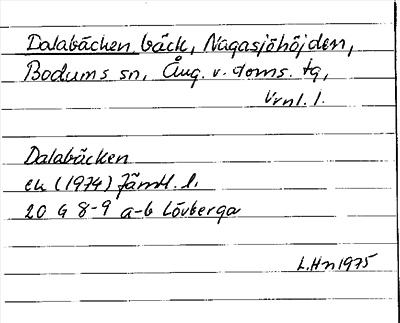 Dalabäcken bäck, Nagasjöhöjden,
Bodums sn, Ång. v. doms. tg,
Vrnl. l.
Dalabäcken
ek (1974) Jämtl. l.
20 G 8-9 a-b Lövberga
L.Hn 1975